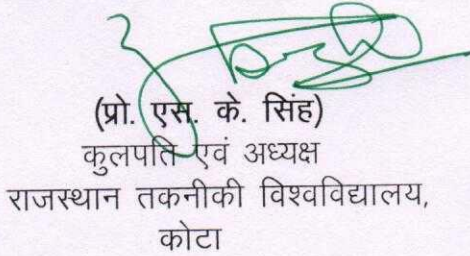 (प्रो. एस. के. सिंह)
कुलपति एवं अध्यक्ष
राजस्थान तकनीकी विश्वविद्यालय,
कोटा